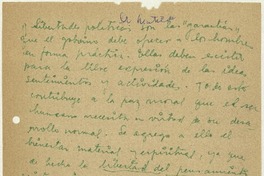 y libertades políticas son las "garantías"
que el gobierno debe ofrecer a los hombres
en forma práctica. Ellas deben existir
para la libre expresión de las ideas,
sentimientos y actividades. Todo esto
contribuye a la paz moral que el ser
humano necesita en virtud a su desa
rrollo normal. Se agrega a ello el
bienestar material y espiritual, ya que
de hecho la libertad del pensamiento